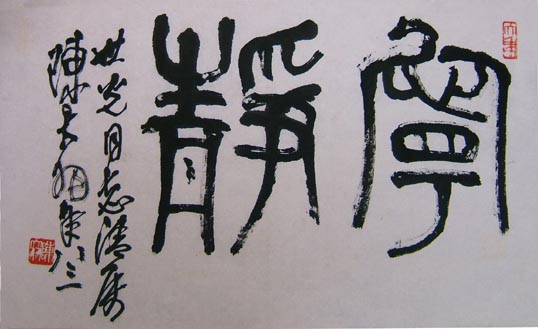 寧靜
世光同志清属
陳大羽年八三